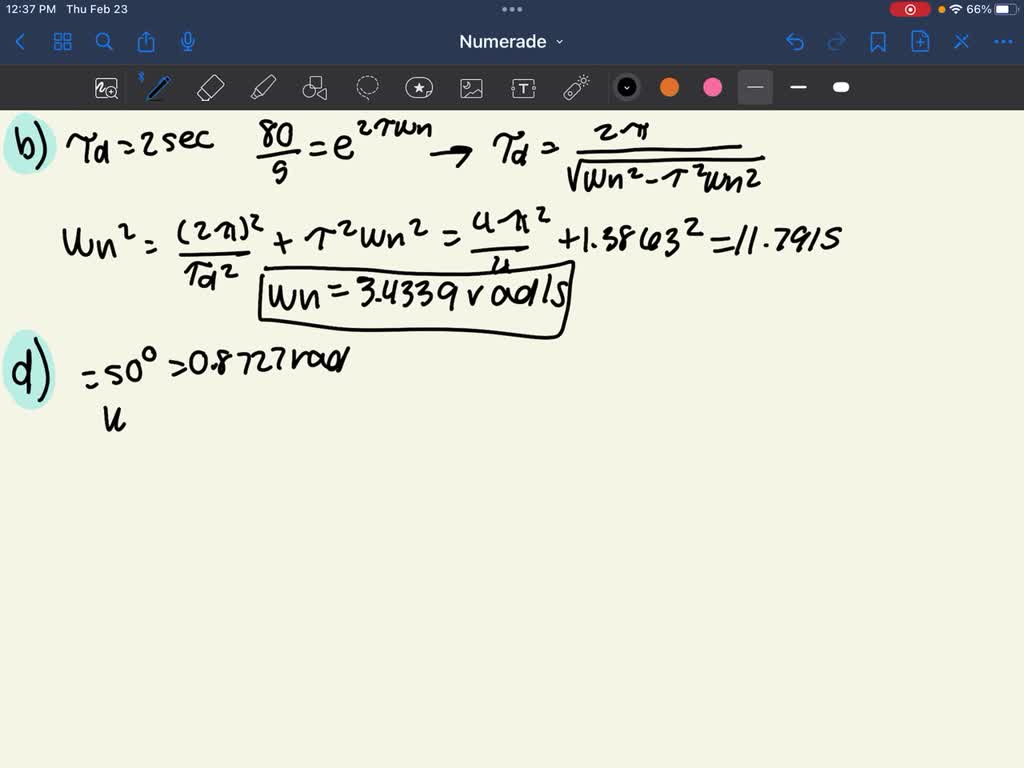 12:37 PM Thu Feb 23 66%
Numerade
b) τd = 2 sec 80/5 = e^2τωn → τd = 2π/√ωn² - τ²ωn²
ωn² = (2π)²/τd² + τ²ωn² = 4π²/4 + 1.3863² = 11.7915
ωn = 3.4339 rad/s
d) = 50° = 0.8727 rad
k